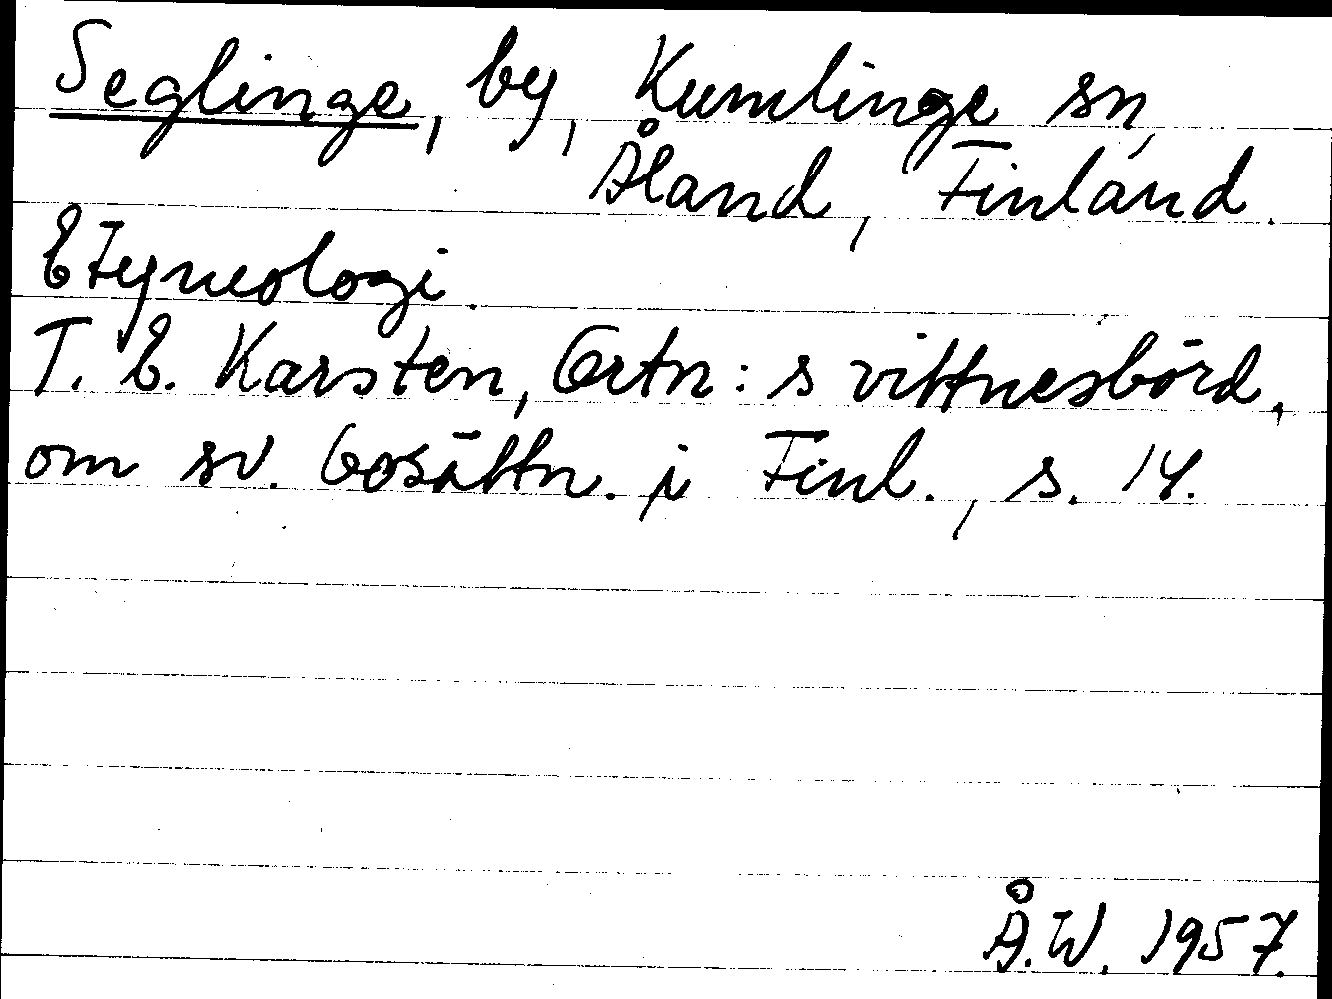 Seglinge, by, Kumlinge sn,
Åland, Finland.
Etymologi.
T. E. Karsten, Ortn:s vittnesbörd,
om sv. bosättn. i Finl., s. 14.
Å.W. 1957.